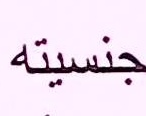 جنسيته